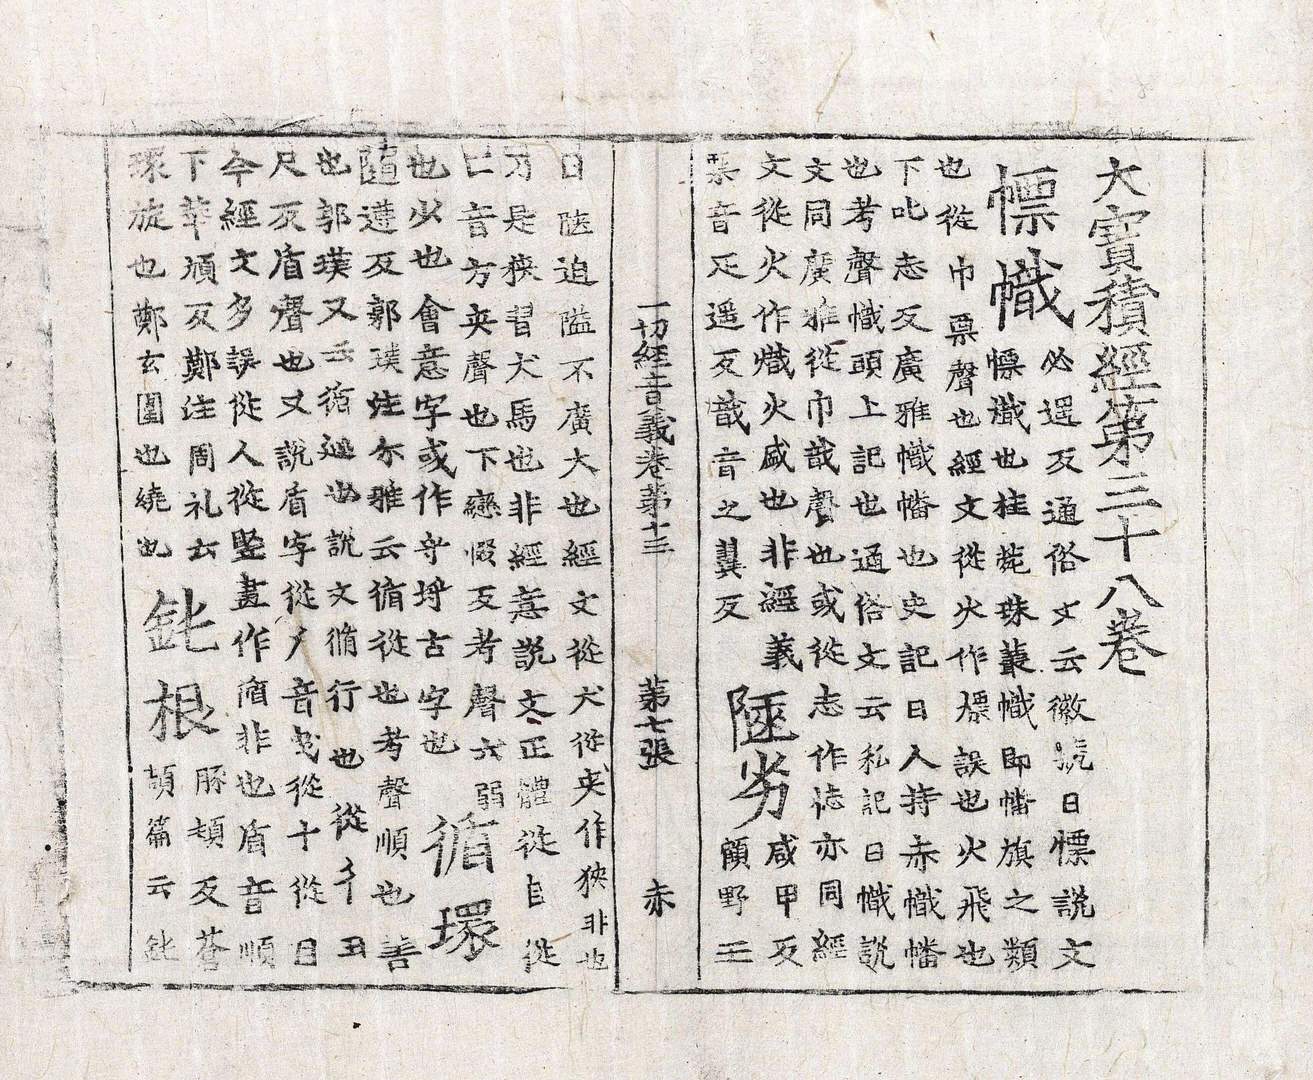 大寶積經第三十八卷
幖幟
必遥反通俗文云徽號曰幖說文
幖幟也桂苑珠叢幟即幡旗之類
也從巾票聲也經文從火作熛誤也火飛也
下叱志反廣雅幟幡也史記曰人持赤幟幡
也考聲幟頭上記也通俗文云私記曰幟說
文同廣雅從巾戠聲也或從志作𢘍亦同經
文從火作熾火盛也非經義
票音疋遥反戠音之翼反
陿劣
咸甲反
顧野王
一切經音義卷第十三 第七張 赤
曰陿迫隘不廣大也經文從犬從夾作狹非也
乃是狹習犬馬也非經意說文正體從𨸏從
匚音方夾聲也下戀惙反考聲云弱
也少也會意字或作寽埒古字也
循環
隨遵反郭璞注尒雅云循從也考聲順也善
也郭璞又云循𨒬也說文循行也從彳丑
尺反盾聲也又說盾字從𠂆音曳從十從目
今經文多誤從人從竪畫作脩非也盾音順
下華頑反鄭注周礼云
環旋也鄭玄圍也繞也
鈋根
豚頓反蒼
頡篇云鈋